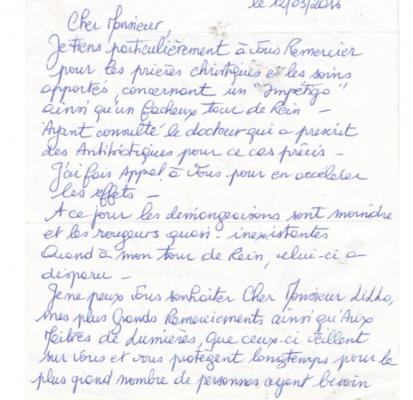 le 12/03/2016
Cher Monsieur,
Je tiens particulièrement à Vous Remercier
pour les prières christiques et les soins
apportés, concernant un "Impétigo"
ainsi qu'un facheux tour de Rein -
Ayant consulté le docteur qui a prescrit
des Antibiotiques pour ce cas précis -
J'ai fais Appel à Vous pour en accélérer
les effets -
A ce jour les démangeaisons sont moindre
et les rougeurs quasi-inexistantes
Quand à mon tour de Rein, celui-ci a
disparu -
Je ne peux Vous souhaiter Cher Monsieur
mes plus Grands Remerciements ainsi qu'Aux
Maîtres de Lumières, que ceux-ci veillent
sur Vous et vous protègent longtemps pour le
plus grand nombre de personnes ayant besoin